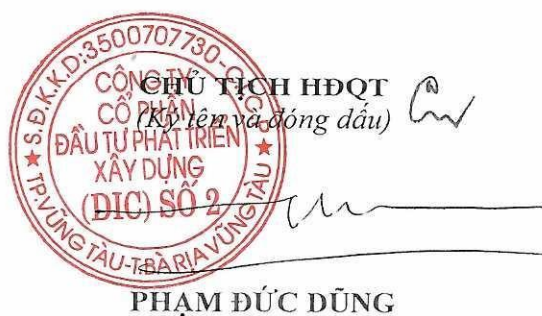 CHỦ TỊCH HĐQT
(Ký tên và đóng dấu)
S.Đ.K.K.D:3500707730-C.T.C.P
CÔNG TY
CỔ PHẦN
ĐẦU TƯ PHÁT TRIỂN
XÂY DỰNG
(DIC) SỐ 2
TP.VŨNG TÀU-T.BÀ RỊA VŨNG TÀU
PHẠM ĐỨC DŨNG